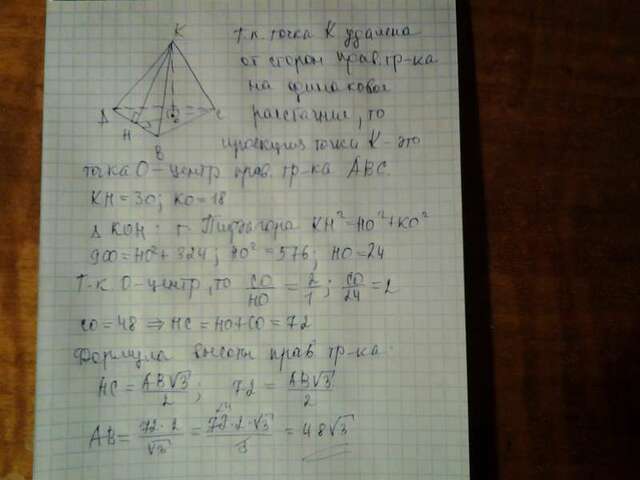 K
A
H
B
O
C
Т.к. точка K удалена
от сторон прав. тр-ка
на одинаковое
расстояние, то
проекция точки K - это
точка O - центр прав. тр-ка ABC.
KH = 30; KO = 18
Δ KOH: т. Пифагора KH² = HO² + KO²
900 = HO² + 324; HO² = 576; HO = 24
Т.к. O - центр, то CO/HO = 2/1; CO/24 = 2
CO = 48 ⇒ HC = HO + CO = 72
Формула высоты прав тр-ка:
HC = AB√3/2; 72 = AB√3/2
AB = 72·2/√3 = 72·2·√3/3 = 48√3
24